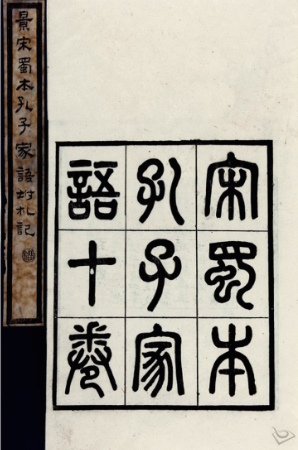 景宋蜀本孔子家語坿札記
宋蜀本
孔子家
語十卷